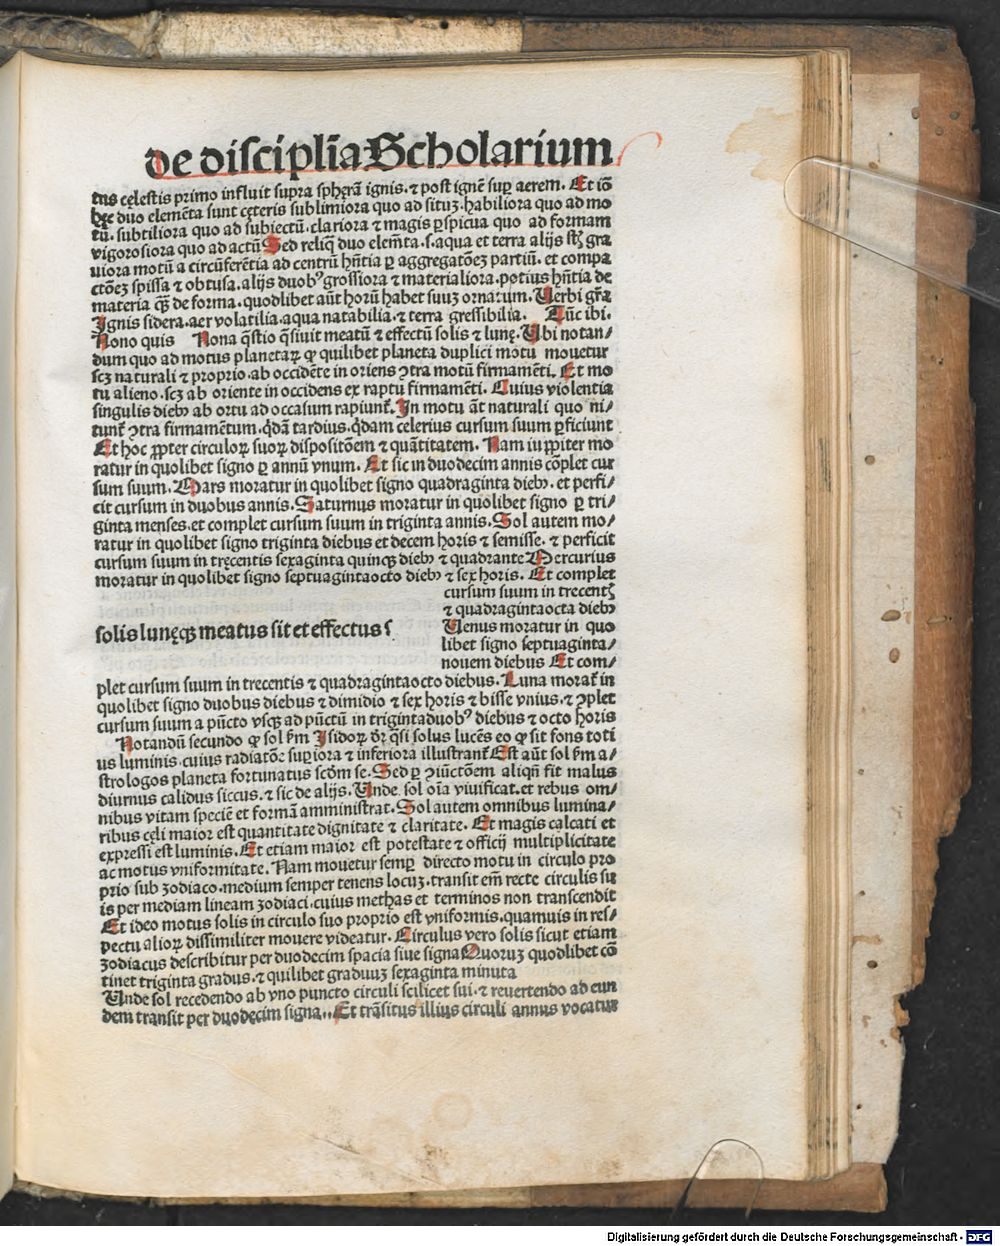 de discipliāa Scholarium
tus cęlestis primo influit supra spherā ignis. ⁊ post ignē suꝑ aerem. Et iō
hęc duo elemēta sunt cęteris sublimiora quo ad situꝫ. habiliora quo ad mo
tū. subtiliora quo ad subiectū. clariora ⁊ magis ꝑspicua quo ad formam
vigorosiora quo ad actū Sed reliq̄ duo elem̄ta .s. aqua et terra alijs sꝫ gra
uiora motū a circūferētia ad centrū hn̄tia ꝑ aggregatōeꝫ partiū. et compa
ctōeꝫ spissa ⁊ obtusa. alijs duobꝰ grossiora ⁊ materialiora. potius hn̄tia de
materia qꝫ̄ de forma. quodlibet aūt horū habet suuꝫ ornatum. Verbi gr̄a
Ignis sidera. aer volatilia. aqua natabilia. ⁊ terra gressibilia. Tūc ibi.
Nono quis Nona q̄stio q̄siuit meatū ⁊ effectū solis ⁊ lunę. Vbi notan⸗
dum quo ad motus planetaꝝ ꝙ quilibet planeta duplici motu mouetur
scꝫ naturali ⁊ proprio. ab occidēte in oriens ꝯtra motū firmamēti. Et mo
tu alieno. scꝫ ab oriente in occidens ex raptu firmamēti. Cuius violentia
singulis dieb⁊ ab ortu ad occasum rapiunt̄. In motu āt naturali quo ni⸗
tunt̄ ꝯtra firmamētum. q̄dā tardius. q̄dam celerius cursum suum ꝑficiunt
Et hoc ꝓpter circuloꝝ suoꝝ dispositōem ⁊ quātitatem. Nam iuppiter mo
ratur in quolibet signo ꝑ annū vnum. Et sic in duodecim annis cōplet cur
sum suum. Mars moratur in quolibet signo quadraginta dieb⁊. et perfi⸗
cit cursum in duobus annis. Saturnus moratur in quolibet signo ꝑ tri⸗
ginta menses. et complet cursum suum in triginta annis. Sol autem mo⸗
ratur in quolibet signo triginta diebus et decem horis ⁊ semisse. ⁊ perficit
cursum suum in tręcentis sexaginta quinqꝫ dieb⁊ ⁊ quadrante Mercurius
moratur in quolibet signo septuagintaocto dieb⁊ ⁊ sex horis. Et complet
cursum suum in trecentꝭ
⁊ quadragintaocta dieb⁊
solis lunęqꝫ meatus sit et effectus?
Venus moratur in quo
libet signo septuaginta⸗
nouem diebus Et com⸗
plet cursum suum in trecentis ⁊ quadragintaocto diebus. Luna morat̄ in
quolibet signo duobus diebus ⁊ dimidio ⁊ sex horis ⁊ bisse vnius. ⁊ ꝯplet
cursum suum a pūcto vsqꝫ ad pūctū in trigintaduobꝰ diebus ⁊ octo horis
Notandū secundo ꝙ sol ẜm Isidoꝝ dr̄ q̄si solus lucēs eo ꝙ sit fons toti
us luminis. cuius radiatōe suꝑiora ⁊ inferiora illustrant̄ Est aūt sol ẜm a⸗
strologos planeta fortunatus scd̄m se. Sed ꝑ ꝯiūctōem aliqn̄ fit malus
diurnus calidus siccus. ⁊ sic de alijs. Vnde sol oīa viuificat. et rebus om⸗
nibus vitam speciē et formā amministrat. Sol autem omnibus lumina⸗
ribus cęli maior est quantitate dignitate ⁊ claritate. Et magis calcati et
expressi est luminis. Et etiam maior est potestate ⁊ officij multiplicitate
ac motus vniformitate. Nam mouetur semꝑ directo motu in circulo pro
prio sub zodiaco. medium semper tenens locuꝫ. transit em̄ recte circulis su
is per mediam lineam zodiaci. cuius methas et terminos non transcendit
Et ideo motus solis in circulo suo proprio est vniformis. quamuis in res⸗
pectu alioꝝ dissimiliter mouere videatur. Circulus vero solis sicut etiam
zodiacus describitur per duodecim spacia siue signa Quoruꝫ quodlibet cō
tinet triginta gradus. ⁊ quilibet graduuꝫ sexaginta minuta
Vnde sol recedendo ab vno puncto circuli scilicet sui. ⁊ reuertendo ad eun
dem transit per duodęcim signa.. Et trāsitus illius circuli annus vocatur
Digitalisierung gefördert durch die Deutsche Forschungsgemeinschaft - DFG